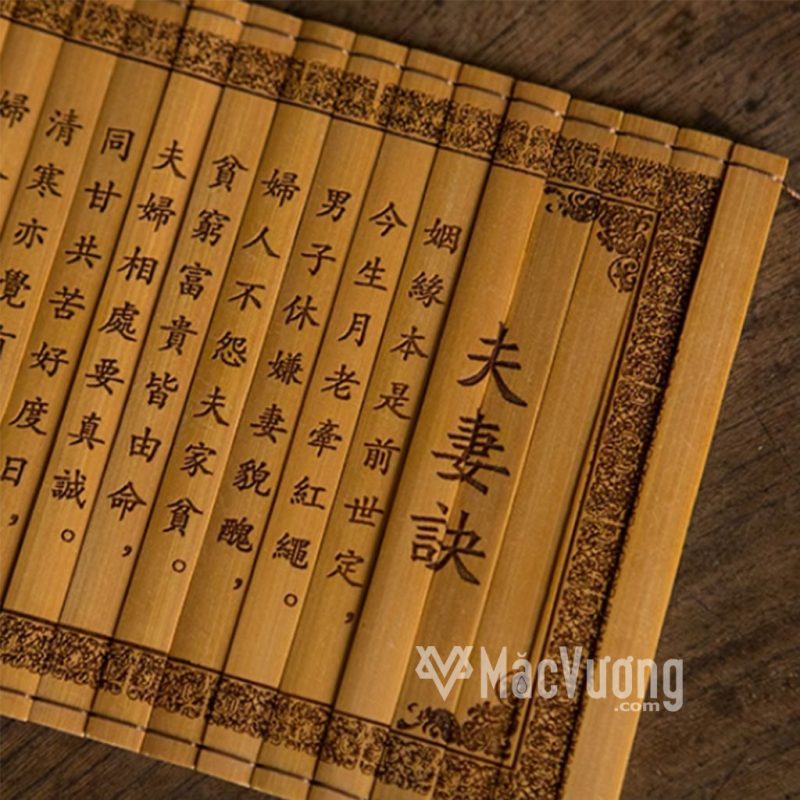 夫妻訣
姻緣本是前世定，
今生月老牽紅繩。
男子休嫌妻貌醜，
婦人不怨夫家貧。
貧窮富貴皆由命，
夫婦相處要真誠。
同甘共苦好度日，
清寒亦覺有
婦
MặcVương
.com